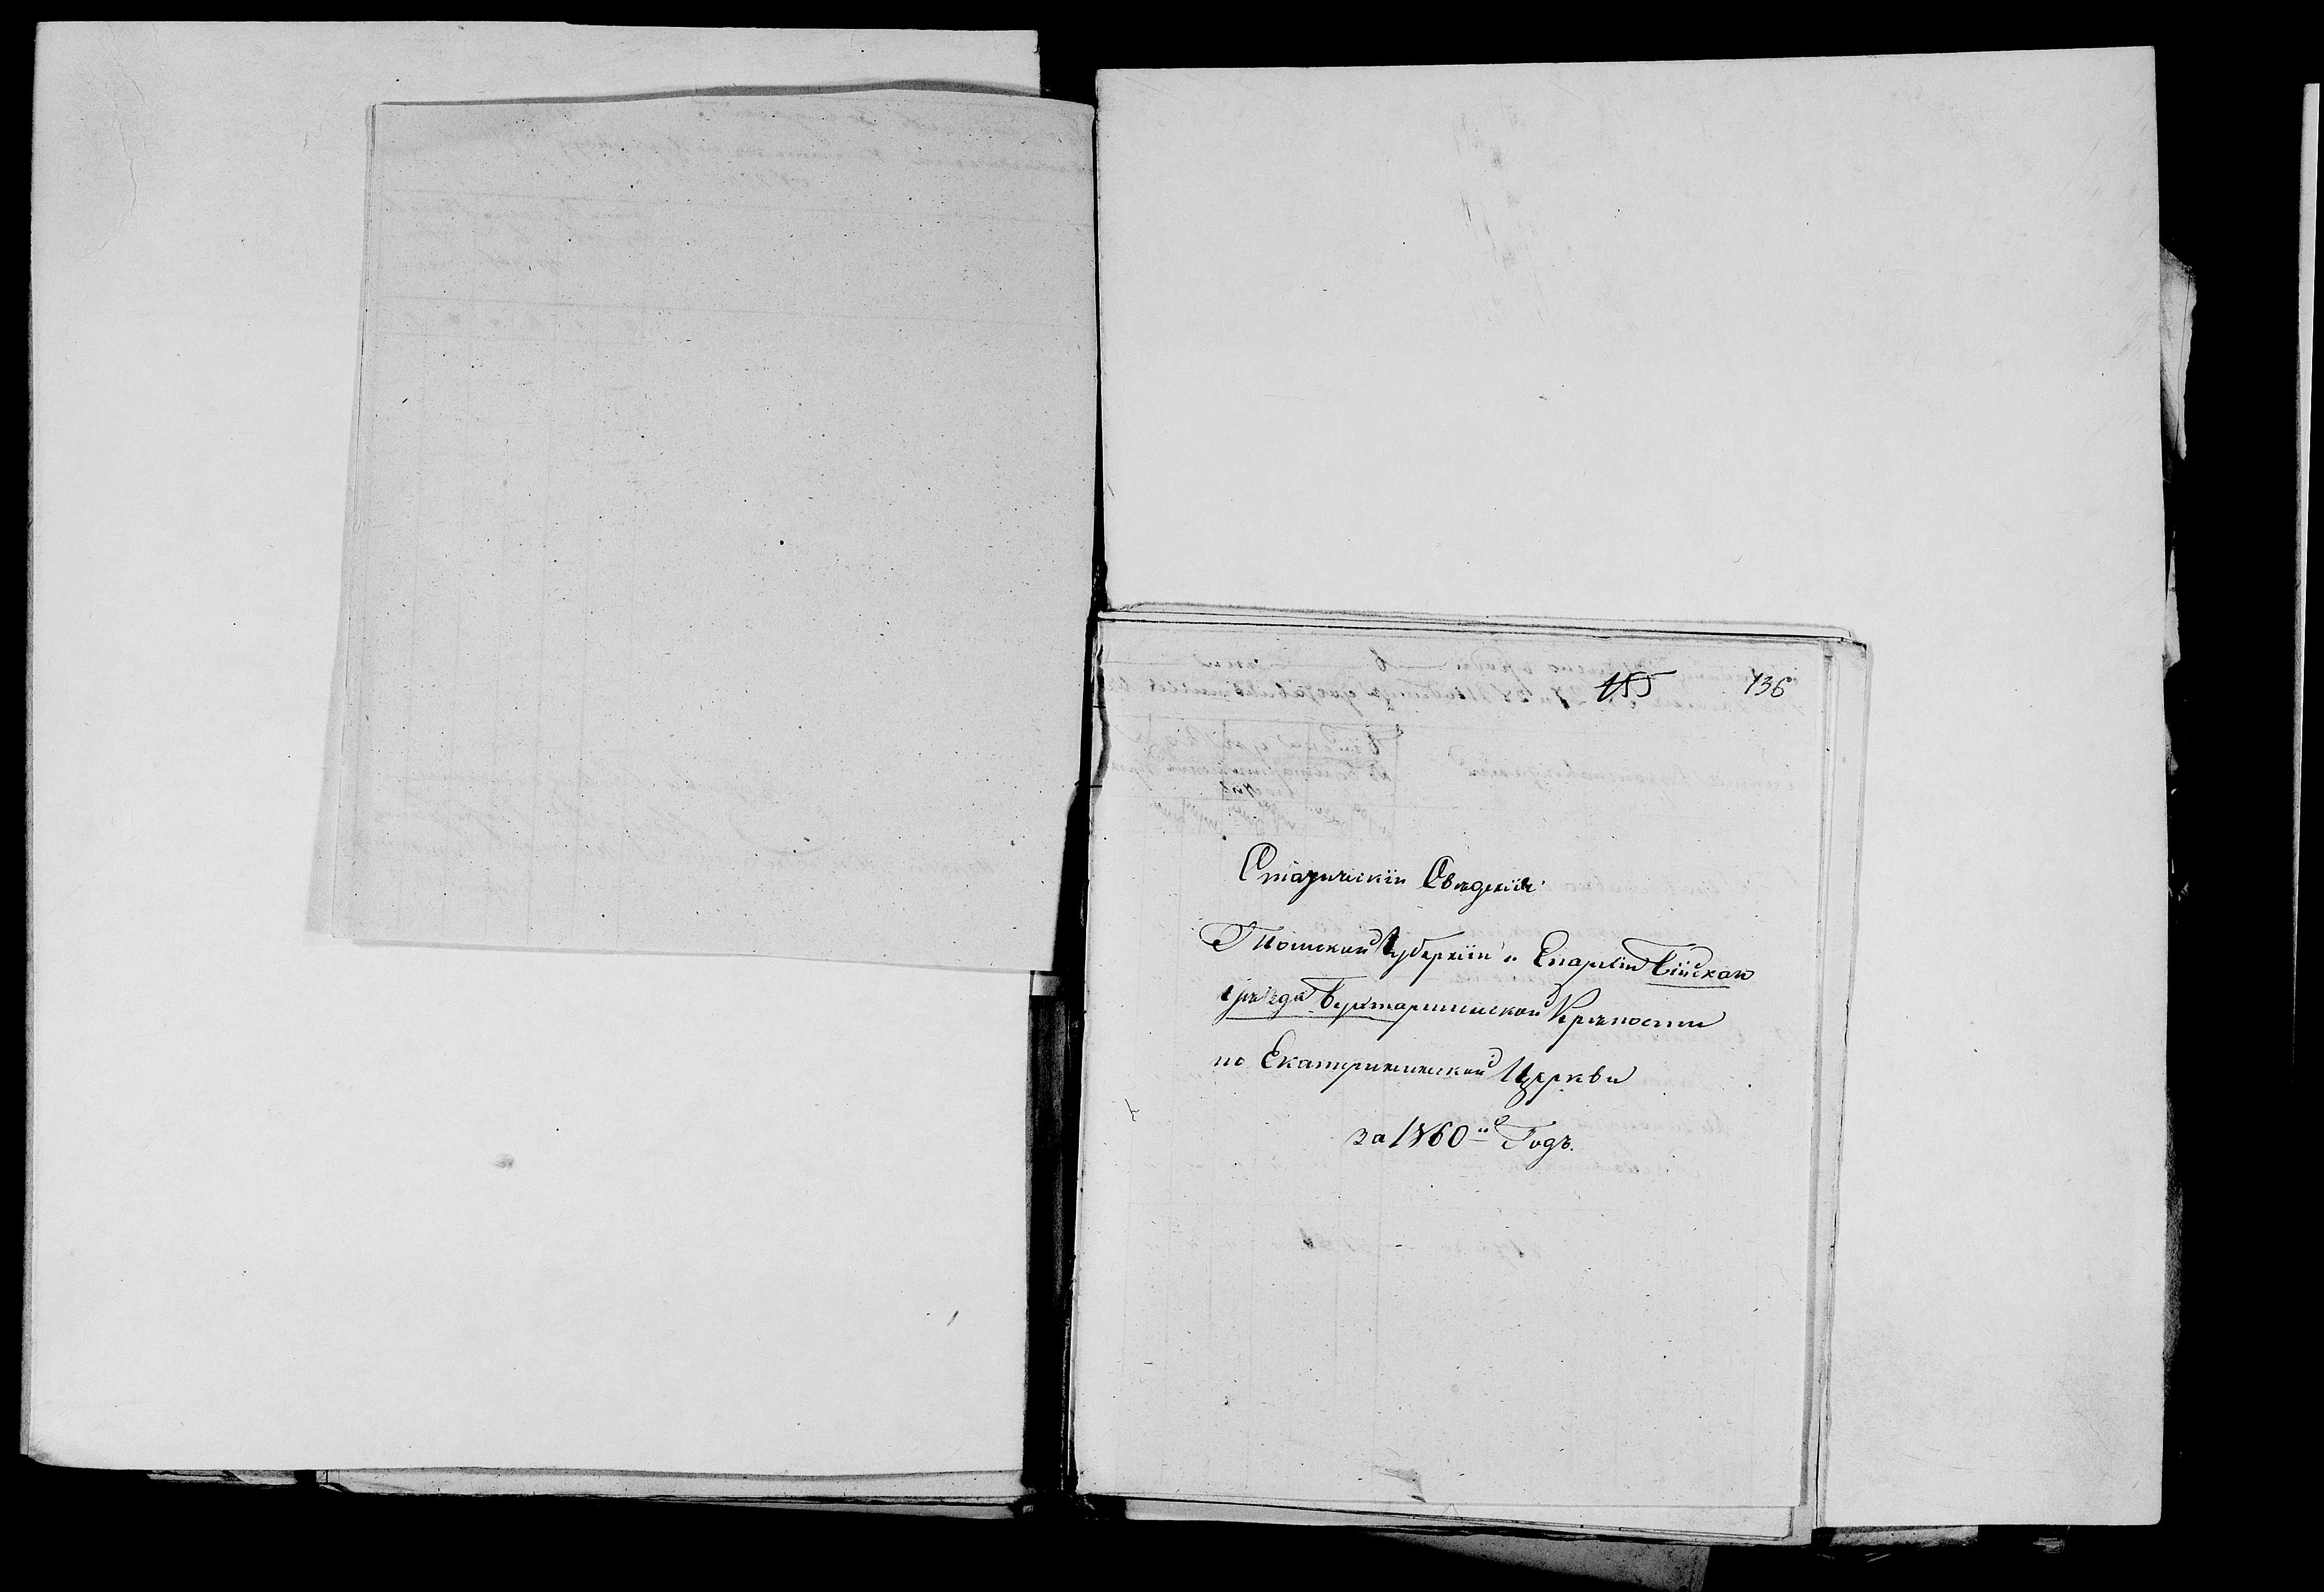 155 136
Статическiи Сведенiя
Томской Губернiи и Епархiи Бiйскаго
уѣзда Бухтарминской Крѣпости
по Екатерининской Церкви
за 1860й Годъ.